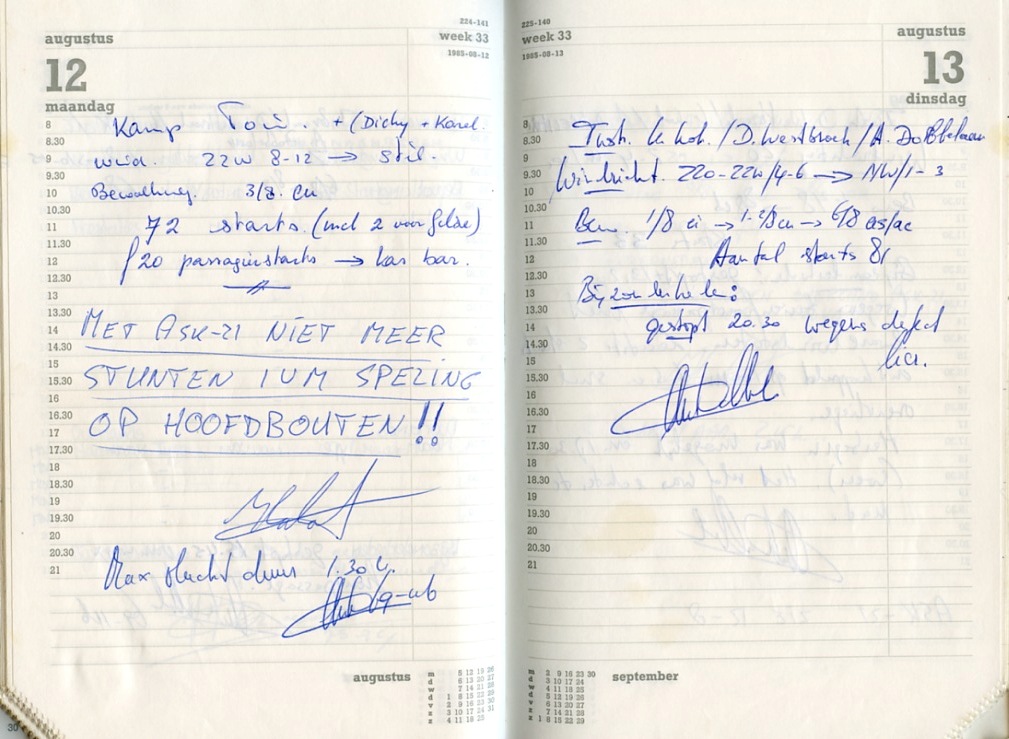 224-141
augustus
week 33
1985-08-12
12
maandag
Kamp Toin. + (Dichy + Karel.
wind. 220 8-12 → stil.
Bewolking. 3/8. cu
72 starts. (incl 2 voor Gelse)
20 passagierstarts → kas bar.
MET ASK-21 NIET MEER
STUNTEN IVM SPELING
OP HOOFDBOUTEN!!
Max vlucht duur 1.30 u.
8
8.30
9
9.30
10
10.30
11
11.30
12
12.30
13
13.30
14
14.30
15
15.30
16
16.30
17
17.30
18
18.30
19
19.30
20
20.30
21
augustus
m 5 12 19 26
d 6 13 20 27
w 7 14 21 28
d 1 8 15 22 29
v 2 9 16 23 30
z 3 10 17 24 31
z 4 11 18 25
30
225-140
week 33
1985-08-13
augustus
13
dinsdag
Instr. /D. Westbroek /A.
Windricht. 220-220/4-6 → NW/1-3
Bew. 1/8 ci → 1-2/8 cu → 6/8 as/ac
Aantal starts 81
Bijzonderheden:
gestopt 20.30 wegens defect
lier.
8
8.30
9
9.30
10
10.30
11
11.30
12
12.30
13
13.30
14
14.30
15
15.30
16
16.30
17
17.30
18
18.30
19
19.30
20
20.30
21
m 2 9 16 23 30
d 3 10 17 24
w 4 11 18 25
d 5 12 19 26
v 6 13 20 27
z 7 14 21 28
z 1 8 15 22 29
september